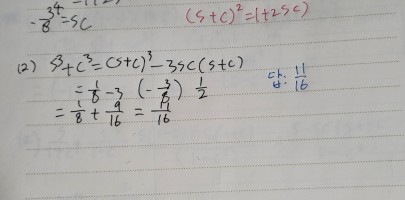 -3/8=sc
(s+c)²=1+2sc)
(2) s³+c³=(s+c)³-3sc(s+c)
=1/8-3(-3/8)1/2
답: 11/16
=1/8+9/16=11/16